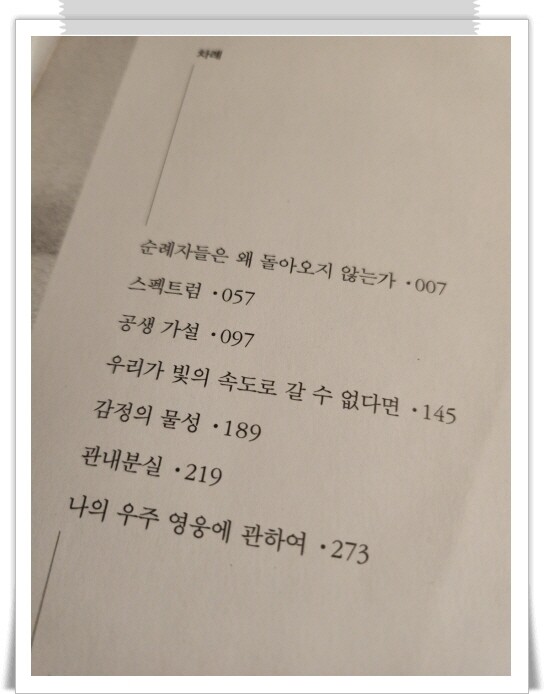 차례
순례자들은 왜 돌아오지 않는가 •007
스펙트럼 •057
공생 가설 •097
우리가 빛의 속도로 갈 수 없다면 •145
감정의 물성 •189
관내분실 •219
나의 우주 영웅에 관하여 •273